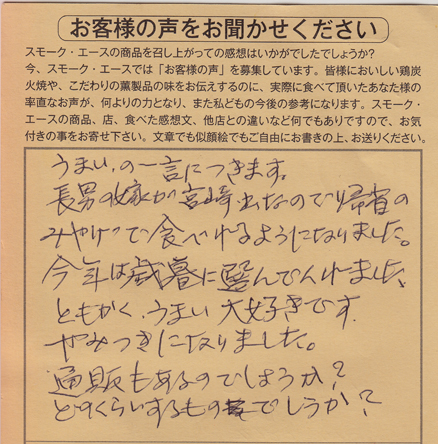 お客様の声をお聞かせください
スモーク・エースの商品を召し上がっての感想はいかがでしたでしょうか?
今、スモーク・エースでは「お客様の声」を募集しています。皆様においしい鶏炭
火焼や、こだわりの薫製品の味をお伝えするのに、実際に食べて頂いたあなた様の
率直なお声が、何よりの力となり、また私どもの今後の参考になります。スモーク・
エースの商品、店、食べた感想文、他店との違いなど何でもありですので、お気
付きの事をお寄せ下さい。文章でも似顔絵でもご自由にお書きの上、お送りください。
うまい、の一言につきます。
長男の嫁が宮崎出なので帰省の
みやげで食べれるようになりました。
今年は歳暮に選んでくれました、
ともかく、うまい 大好きです.
やみつきになりました。
通販もあるのでしょうか?
どのくらいするものでしうか?